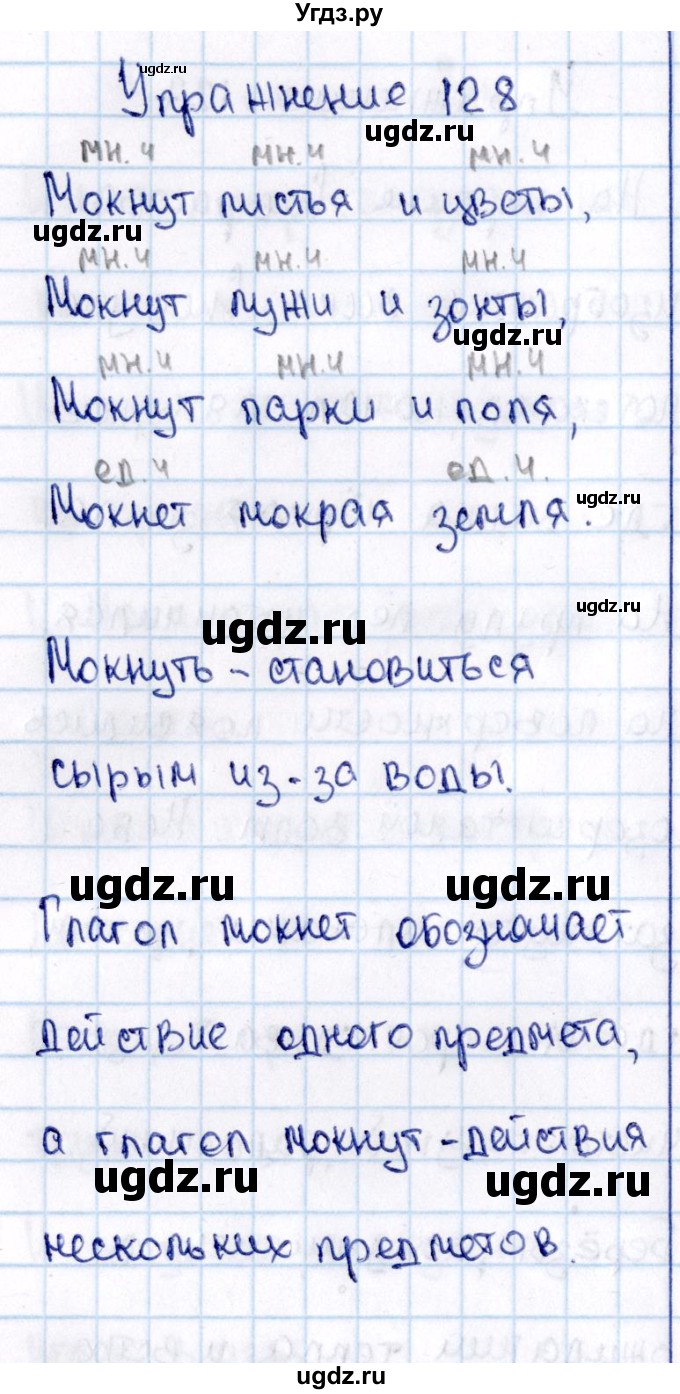 Угдз.ру
ugdz.ru
Упражнение 128
ugdz.ru
мн.ч мн.ч мн.ч
Мокнут листья и цветы,
ugdz.ru
мн.ч мн.ч мн.ч
Мокнут лужи и зонты,
ugdz.ru
мн.ч мн.ч мн.ч
Мокнут парки и поля,
ед.ч ед.ч.
Мокнет мокрая земля.
ugdz.ru
ugdz.ru
ugdz.ru
Мокнуть - становиться
сырым из-за воды.
ugdz.ru ugdz.ru
Глагол мокнет обозначает
действие одного предмета,
а глагол мокнут - действия
ugdz.ru ugdz.ru
нескольких предметов.
ugdz.ru